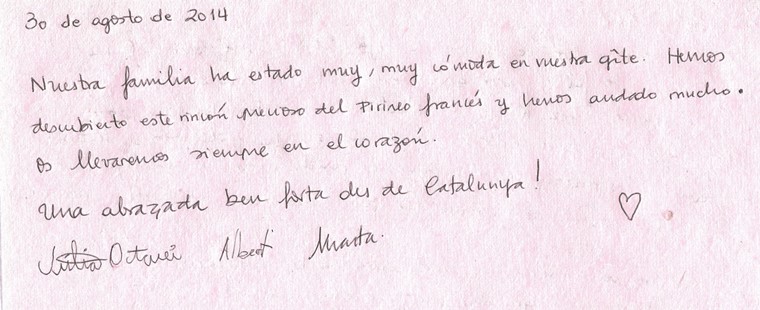 30 de agosto de 2014
Nuestra familia ha estado muy, muy cómoda en vuestra gîte. Hemos
descubierto este rincón precioso del Pirineo francés y hemos andado mucho.
Os llevaremos siempre en el corazón.
Una abraçada ben forta des de Catalunya!
Júlia Octavi Albert Marta.